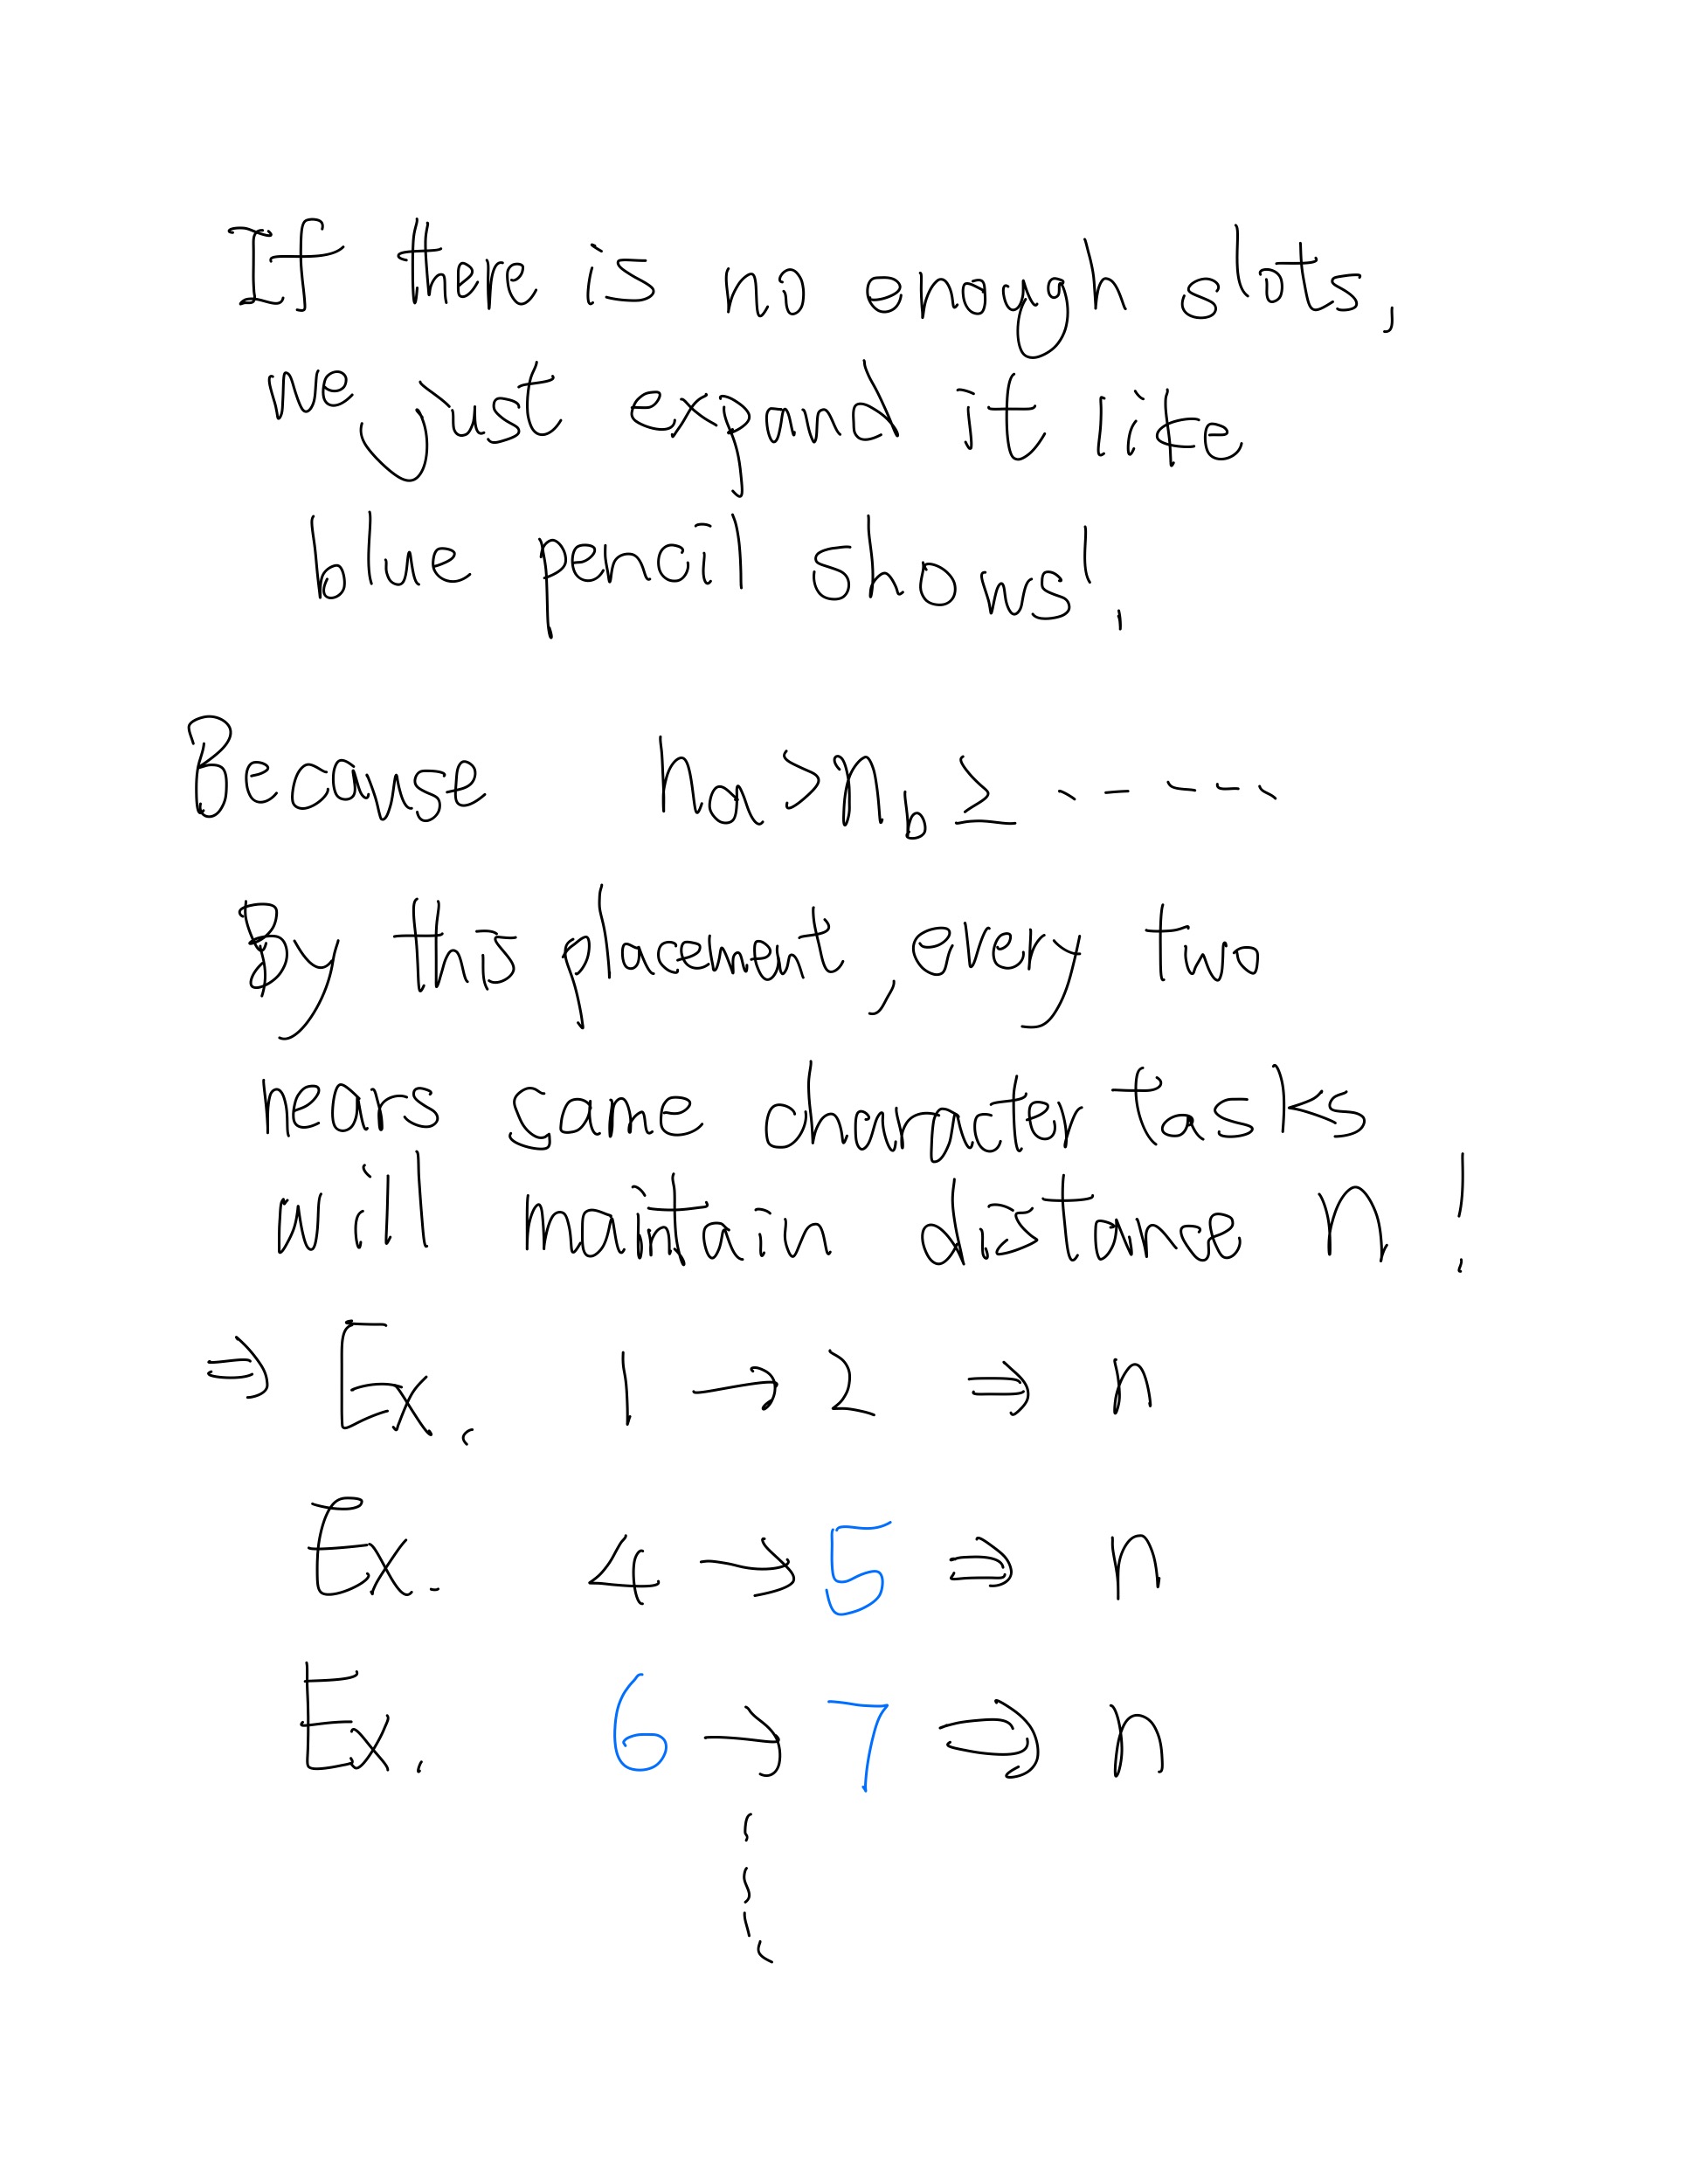 If there is no enough slots,
we just expand it like
blue pencil shows!
Because na > nb ≥ -----
By this placement, every two
nears same character tasks
will maintain distance n!
⇒ Ex. 1 → 2 ⇒ n
Ex. 4 → 5 ⇒ n
Ex. 6 → 7 ⇒ n